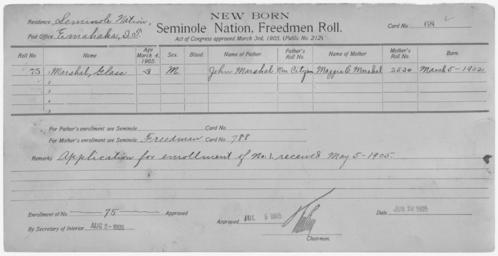 NEW BORN
Residence, Seminole Nation, Seminole Nation, Freedmen Roll. Card No. 68
Post Office, Emahaka, I.T. Act of Congress approved March 3rd, 1905, (Public No. 212).
Roll No. Name Age March 4, 1905. Sex. Blood. Name of Father Father's Roll No. Name of Mother Mother's Roll No. Born.
75 Marshal, Glass 3 M. John Marshal Non Citizen Marshal March 5-1902
For Father's enrollment see Seminole Card No.
For Mother's enrollment see Seminole Freedman Card No. 788
Remarks Application for enrollment of No. 1 received May 5-1905.
Enrollment of No. 75 Approved
By Secretary of Interior AUG 2-1905
Approved 1905
Chairman.
Date 1905